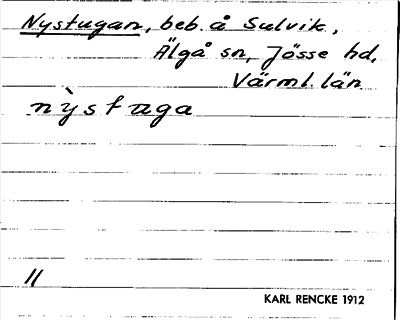 Nystugan, beb. å Sulvik,
Älgå sn, Jösse hd,
Värml. län
nỳstuga
11
KARL RENCKE 1912